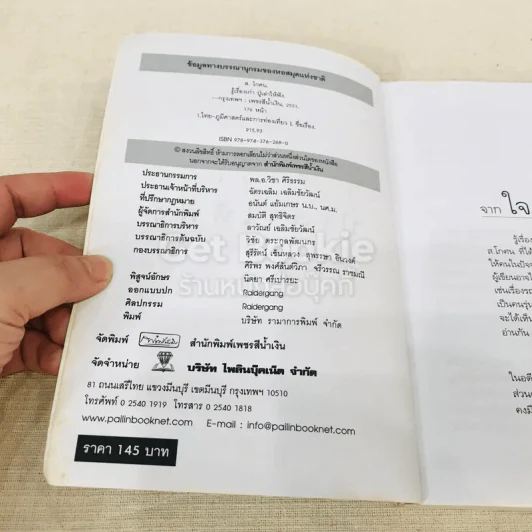 ข้อมูลทางบรรณานุกรมของหอสมุดแห่งชาติ
ส. โกศน.
รู้เรื่องเก่า ปู่เล่าให้ฟัง.
--กรุงเทพฯ : เพชรสีน้ำเงิน, 2551.
176 หน้า
1.ไทย-ภูมิศาสตร์และการท่องเที่ยว I. ชื่อเรื่อง.
915.93
ISBN 978-974-376-268-0
© สงวนลิขสิทธิ์ ห้ามการลอกเลียนไม่ว่าส่วนหนึ่งส่วนใดของหนังสือ
นอกจากจะได้รับอนุญาตจาก สำนักพิมพ์เพชรสีน้ำเงิน
ประธานกรรมการ พล.อ.วิชา ศิริธรรม
ประธานเจ้าหน้าที่บริหาร ฉัตรเฉลิม เฉลิมชัยวัฒน์
ที่ปรึกษากฎหมาย อนันต์ แย้มเกษร น.บ., นศ.ม.
ผู้จัดการสำนักพิมพ์ สมบัติ สุทธิจิตร
บรรณาธิการบริหาร ลาวัณย์ เฉลิมชัยวัฒน์
บรรณาธิการต้นฉบับ วิชัย ตระกูลพัฒนกร
กองบรรณาธิการ สุรีรัตน์ เข็นหลวง สุพรรษา อินวงค์
ศิริพร พงศ์สันติวิภา จรีวรรณ ราชมณี
พิสูจน์อักษร นิตยา ศรีเปารยะ
ออกแบบปก Raidergang
ศิลปกรรม Raidergang
พิมพ์ บริษัท รามาการพิมพ์ จำกัด
จัดพิมพ์ สำนักพิมพ์เพชรสีน้ำเงิน
จัดจำหน่าย บริษัท ไพลินบุ๊คเน็ต จำกัด
81 ถนนเสรีไทย แขวงมีนบุรี เขตมีนบุรี กรุงเทพฯ 10510
โทรศัพท์ 0 2540 1919 โทรสาร 0 2540 1818
www.pailinbooknet.com E-mail : info@pailinbooknet.com
ราคา 145 บาท
จาก ใจ
รู้เรื่อง
ส.โกศน ที่ได้
ให้คนในปัจจุ
ผู้เขียนอาจใ
เช่นเรื่องรถ
เป็นคนรุ่น
จะได้เห็น
อ่านกัน
ในอดี
ส่วน
คงมี